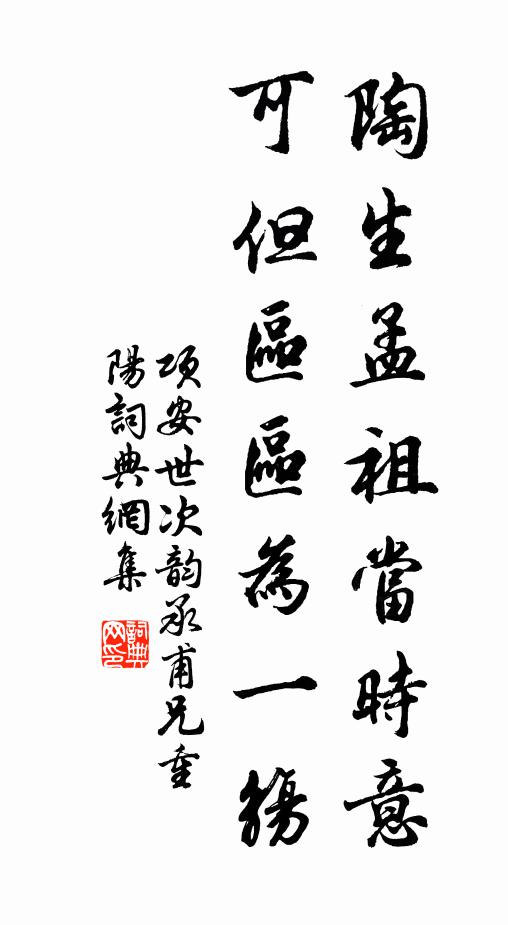 陶生孟祖當時意
可但區區為一觴
項安世次韵承甫兄重
陽詞典網集
詞典
网印